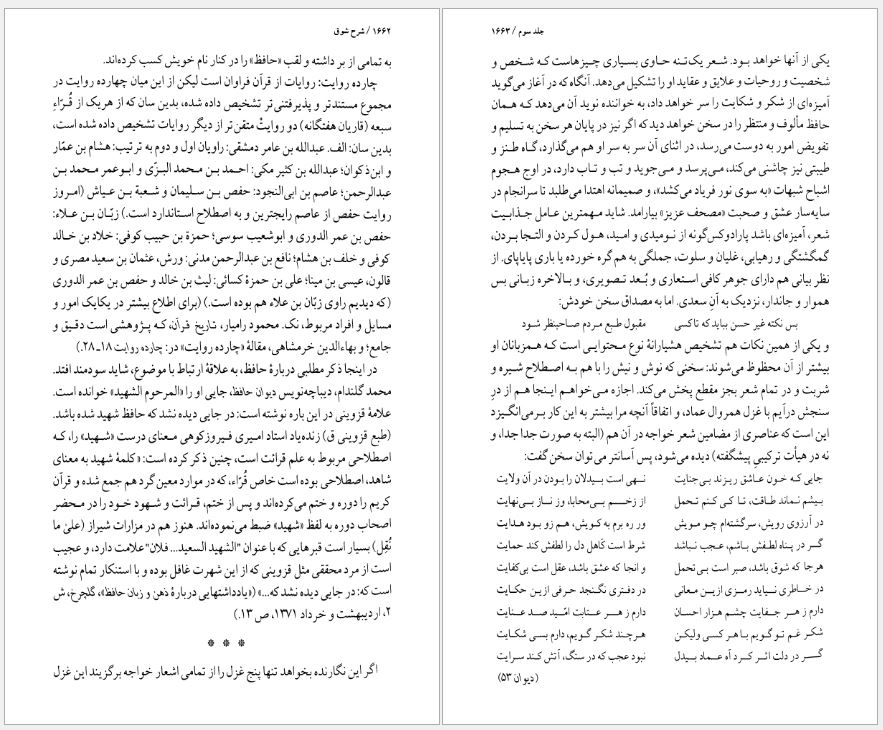 ۱۶۶۲ / شرح شوق
به تمامی از بر داشته و لقب «حافظ» را در کنار نام خویش کسب کرده‌اند.
چارده روایت: روایات از قرآن فراوان است لیکن از این میان چهارده روایت در
مجموع مستندتر و پذیرفتنی‌تر تشخیص داده شده، بدین سان که از هریک از قُرّاءِ
سبعه (قاریان هفتگانه) دو روایتْ متقن‌تر از دیگر روایات تشخیص داده شده است،
بدین سان: الف. عبدالله بن عامر دمشقی: راویان اول و دوم به ترتیب: هشام بن عمّار
و ابن‌ذکوان؛ عبدالله بن کثیر مکی: احمد بن محمد البزّی و ابوعمر محمد بن
عبدالرحمن؛ عاصم بن ابی‌النجود: حفص بن سلیمان و شعبة بن عیاش (امروز
روایت حفص از عاصم رایجترین و به اصطلاح استاندارد است.) زبّان بن علاء:
حفص بن عمر الدوری و ابوشعیب سوسی؛ حمزة بن حبیب کوفی: خلاد بن خالد
کوفی و خلف بن هشام؛ نافع بن عبدالرحمن مدنی: ورش، عثمان بن سعید مصری و
قالون، عیسی بن مینا؛ علی بن حمزة کسائی: لیث بن خالد و حفص بن عمر الدوری
(که دیدیم راوی زبّان بن علاء هم بوده است.) (برای اطلاع بیشتر در یکایک امور و
مسایل و افراد مربوط، نک. محمود رامیار، تاریخ قرآن، که پژوهشی است دقیق و
جامع؛ و بهاءالدین خرمشاهی، مقالهٔ «چارده روایت» در: چارده روایت ۱۸ـ۲۸.)
در اینجا ذکر مطلبی دربارهٔ حافظ، به علاقهٔ ارتباط با موضوع، شاید سودمند افتد.
محمد گلندام، دیباچه‌نویس دیوان حافظ، جایی او را «المرحوم الشهید» خوانده است.
علامهٔ قزوینی در این باره نوشته است: در جایی دیده نشد که حافظ شهید شده باشد.
(طبع قزوینی ق) زنده‌یاد استاد امیری فیروزکوهی معنای درست «شهید» را، که
اصطلاحی مربوط به علم قرائت است، چنین ذکر کرده است: «کلمهٔ شهید به معنای
شاهد، اصطلاحی بوده است خاص قُرّاء، که در موارد معین گرد هم جمع شده و قرآن
کریم را دوره و ختم می‌کرده‌اند و پس از ختم، قرائت و شهود خود را در محضر
اصحاب دوره به لفظ «شهید» ضبط می‌نموده‌اند. هنوز هم در مزارات شیراز (علیٰ ما
نُقِل) بسیار است قبرهایی که با عنوان "الشهید السعید... فلان" علامت دارد، و عجیب
است از مرد محققی مثل قزوینی که از این شهرت غافل بوده و با استنکار تمام نوشته
است که: در جایی دیده نشد که...» («یادداشتهایی دربارهٔ ذهن و زبان حافظ»، گلچرخ، ش
۲، اردیبهشت و خرداد ۱۳۷۱، ص ۱۳.)
* * *
اگر این نگارنده بخواهد تنها پنج غزل را از تمامی اشعار خواجه برگزیند این غزل
جلد سوم / ۱۶۶۳
یکی از آنها خواهد بود. شعر یک‌تنه حاوی بسیاری چیزهاست که شخص و
شخصیت و روحیات و علایق و عقاید او را تشکیل می‌دهد. آنگاه که در آغاز می‌گوید
آمیزه‌ای از شکر و شکایت را سر خواهد داد، به خواننده نوید آن می‌دهد که همان
حافظ مألوف و منتظر را در سخن خواهد دید که اگر نیز در پایان هر سخن به تسلیم و
تفویض امور به دوست می‌رسد، در اثنای آن سر به سر او هم می‌گذارد، گاه طنز و
طیبتی نیز چاشنی می‌کند، می‌پرسد و می‌جوید و تب و تاب دارد، در اوج هجوم
اشباح شبهات «به سوی نور فریاد می‌کشد»، و صمیمانه اهتدا می‌طلبد تا سرانجام در
سایه‌سار عشق و صحبت «مصحف عزیز» بیارامد. شاید مهمترین عامل جذابیت
شعر، آمیزه‌ای باشد پارادوکس‌گونه از نومیدی و امید، هول کردن و التجا بردن،
گمگشتگی و رهیابی، غلیان و سلوت، جملگی به هم گره خورده یا باری پایاپای. از
نظر بیانی هم دارای جوهر کافی استعاری و بُعد تصویری، و بالاخره زبانی بس
هموار و جاندار، نزدیک به آنِ سعدی. اما به مصداق سخن خودش:
بس نکته غیر حسن بباید که تا کسی    مقبول طبع مردم صاحبنظر شود
و یکی از همین نکات هم تشخیص هشیارانهٔ نوع محتوایی است که همزبانان او
بیشتر از آن محظوظ می‌شوند: سخنی که نوش و نیش را با هم به اصطلاح شیره و
شربت و در تمام شعر بجز مقطع پخش می‌کند. اجازه می‌خواهم اینجا هم از درِ
سنجش درآیم با غزل همروال عماد، و اتفاقاً آنچه مرا بیشتر به این کار برمی‌انگیزد
این است که عناصری از مضامین شعر خواجه در آن هم (البته به صورت جدا جدا، و
نه در هیأت ترکیبیِ پیشگفته) دیده می‌شود، پس آسانتر می‌توان سخن گفت:
جایی که خون عاشق ریزند بی‌جنایت    نهی است بیدلان را بودن در آن ولایت
بیشم نماند طاقت، تا کی کنم تحمل    از زخم بی‌محابا، وز ناز بی‌نهایت
در آرزوی رویش، سرگشته‌ام چو مویش    ور ره برم به کویش، هم زو بود هدایت
گر در پناه لطفش باشم، عجب نباشد    شرط است کاهل دل را لطفش کند حمایت
هرجا که شوق باشد، صبر است بی‌تحمل    وانجا که عشق باشد، عقل است بی‌کفایت
در خاطری نیاید رمزی از این معانی    در دفتری نگنجد حرفی از این حکایت
دارم ز هر جفایت چشم هزار احسان    دارم ز هر عتابت امّید صد عنایت
شکر غم تو گویم با هر کسی ولیکن    هرچند شکر گویم، دارم بسی شکایت
گر در دلت اثر کرد آه عماد بیدل    نبود عجب که در سنگ، آتش کند سرایت
(دیوان ۵۳)